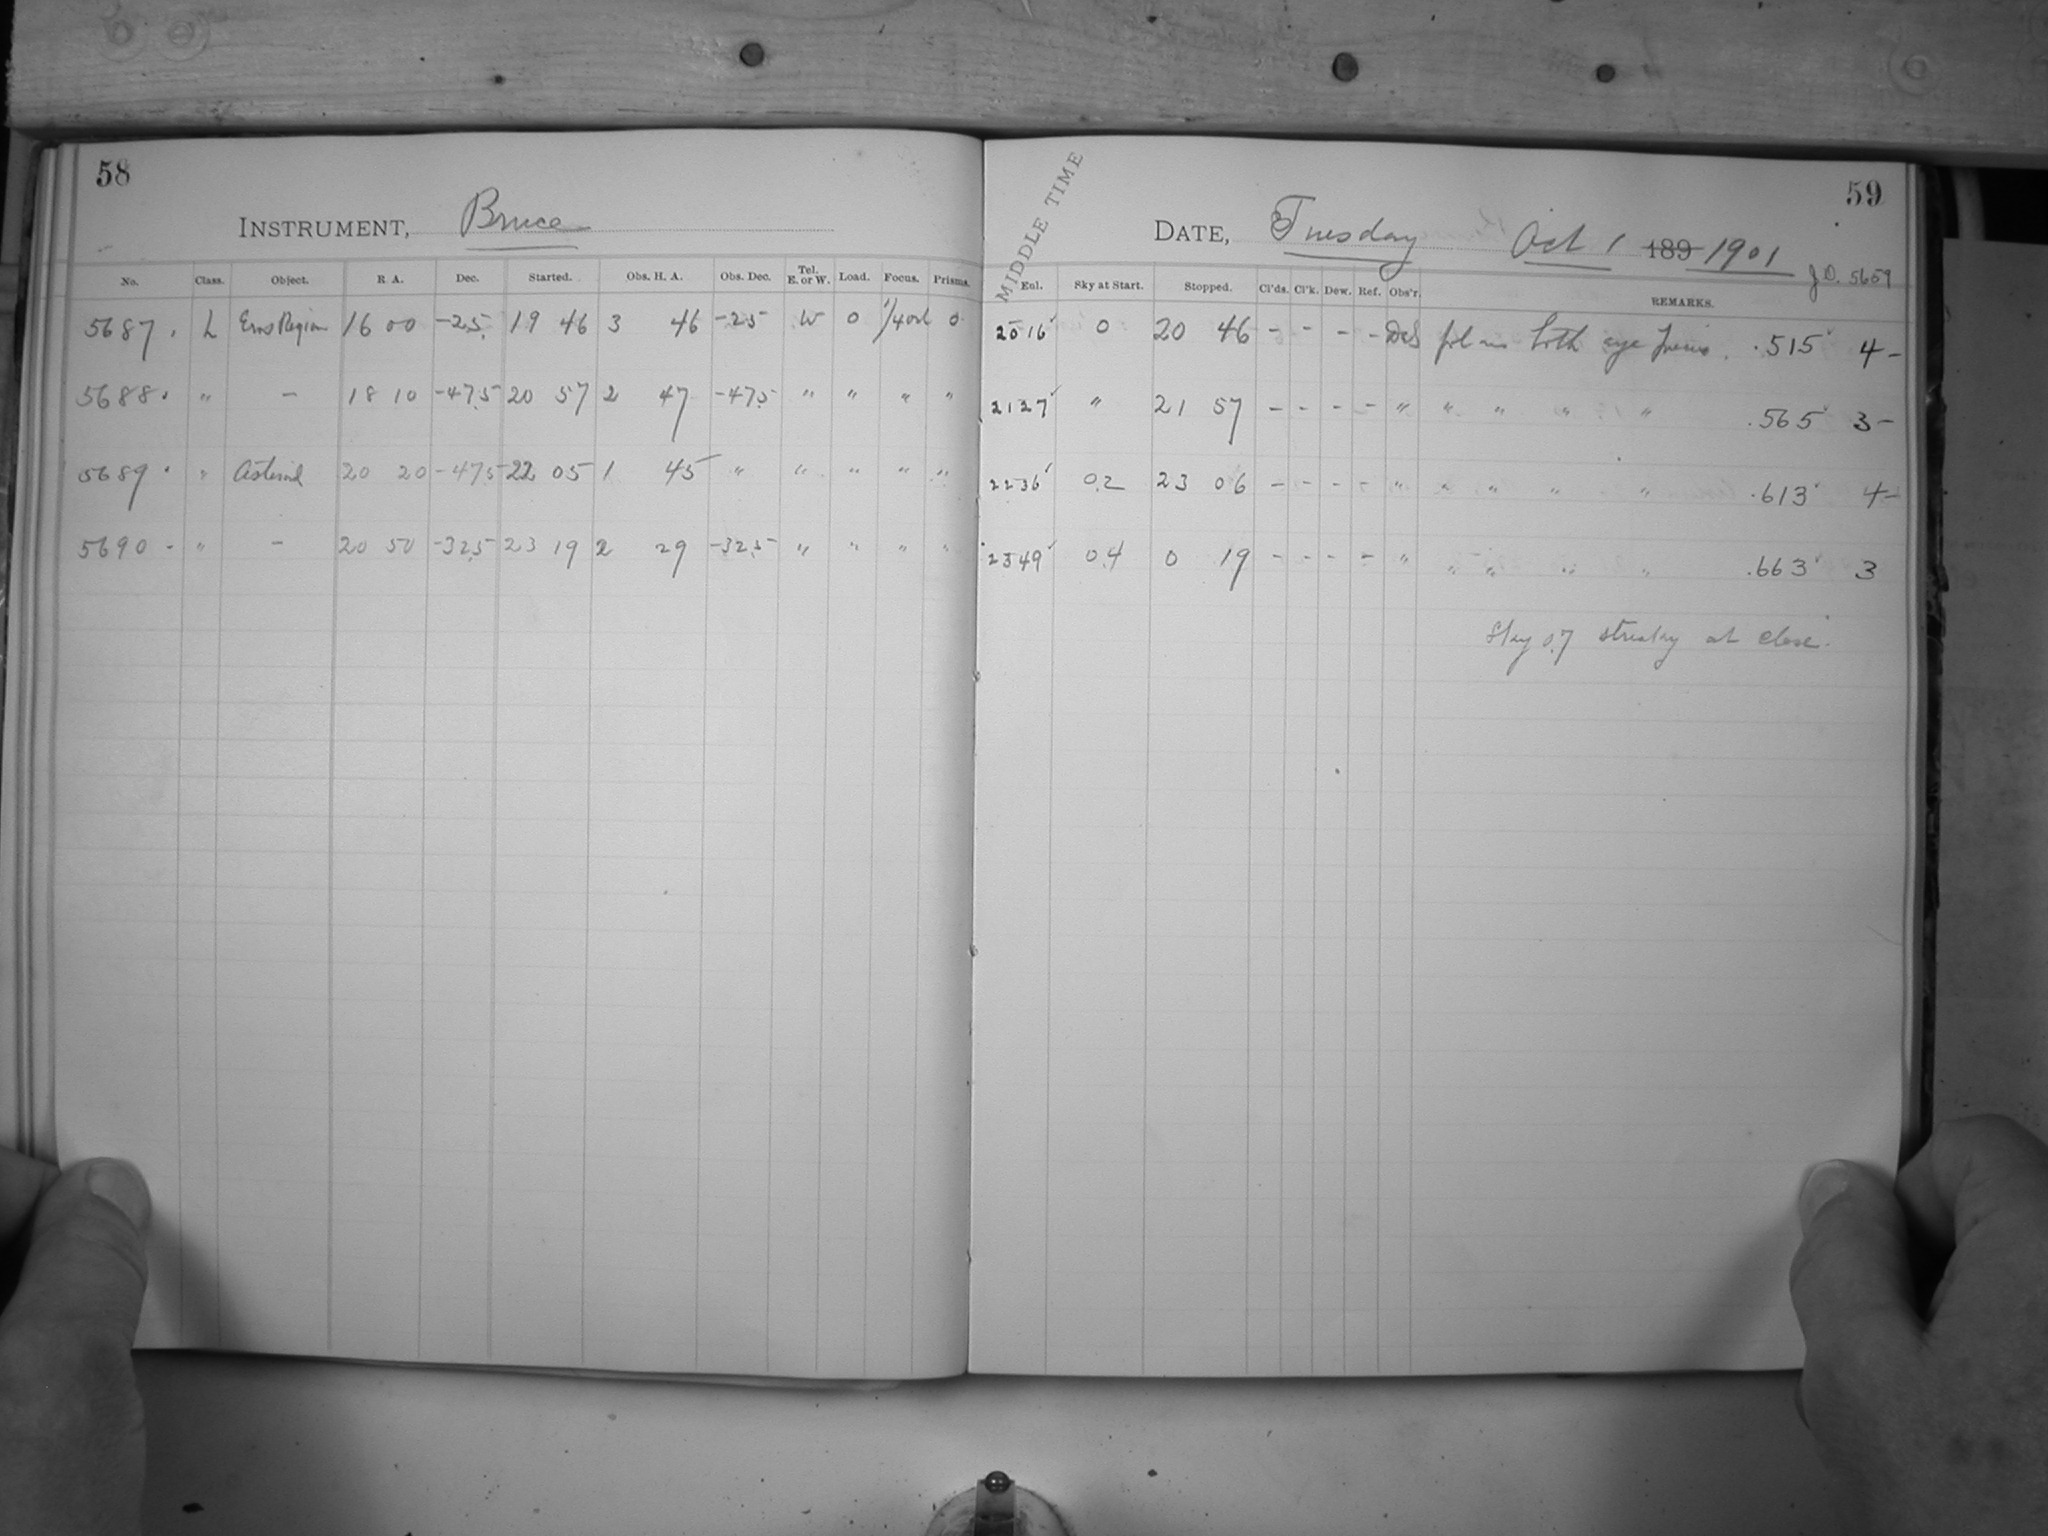 58
INSTRUMENT, Bruce
No. Class. Object. R A. Dec. Started. Obs. H. A. Obs. Dec. Tel. E. or W. Load. Focus. Prisms.
5687 . L Eros Region 16 00 -25 19 46 3 46 -25 W 0 0
5688 . " - 18 10 -47.5 20 57 2 47 -47.5 " " " "
5689 . " Asteroid 20 20 -47.5 22 05 1 45 " " " " "
5690 - " - 20 50 -32.5 23 19 2 29 -32.5 " " " "
59
MIDDLE TIME
DATE, Tuesday Oct 1 189 1901
J.D. 5659
Enl. Sky at Start. Stopped. Cl'ds. Cl'k. Dew. Ref. Obs'r. REMARKS.
2016 0 20 46 - - - - fol in both eye .515 4-
2127 " 21 57 - - - - " " " " " .565 3-
2236 0.2 23 06 - - - - " " " " " .613 4-
2349 0.4 0 19 - - - - " " " " " .663 3
Sky 0.7 streaky at close.